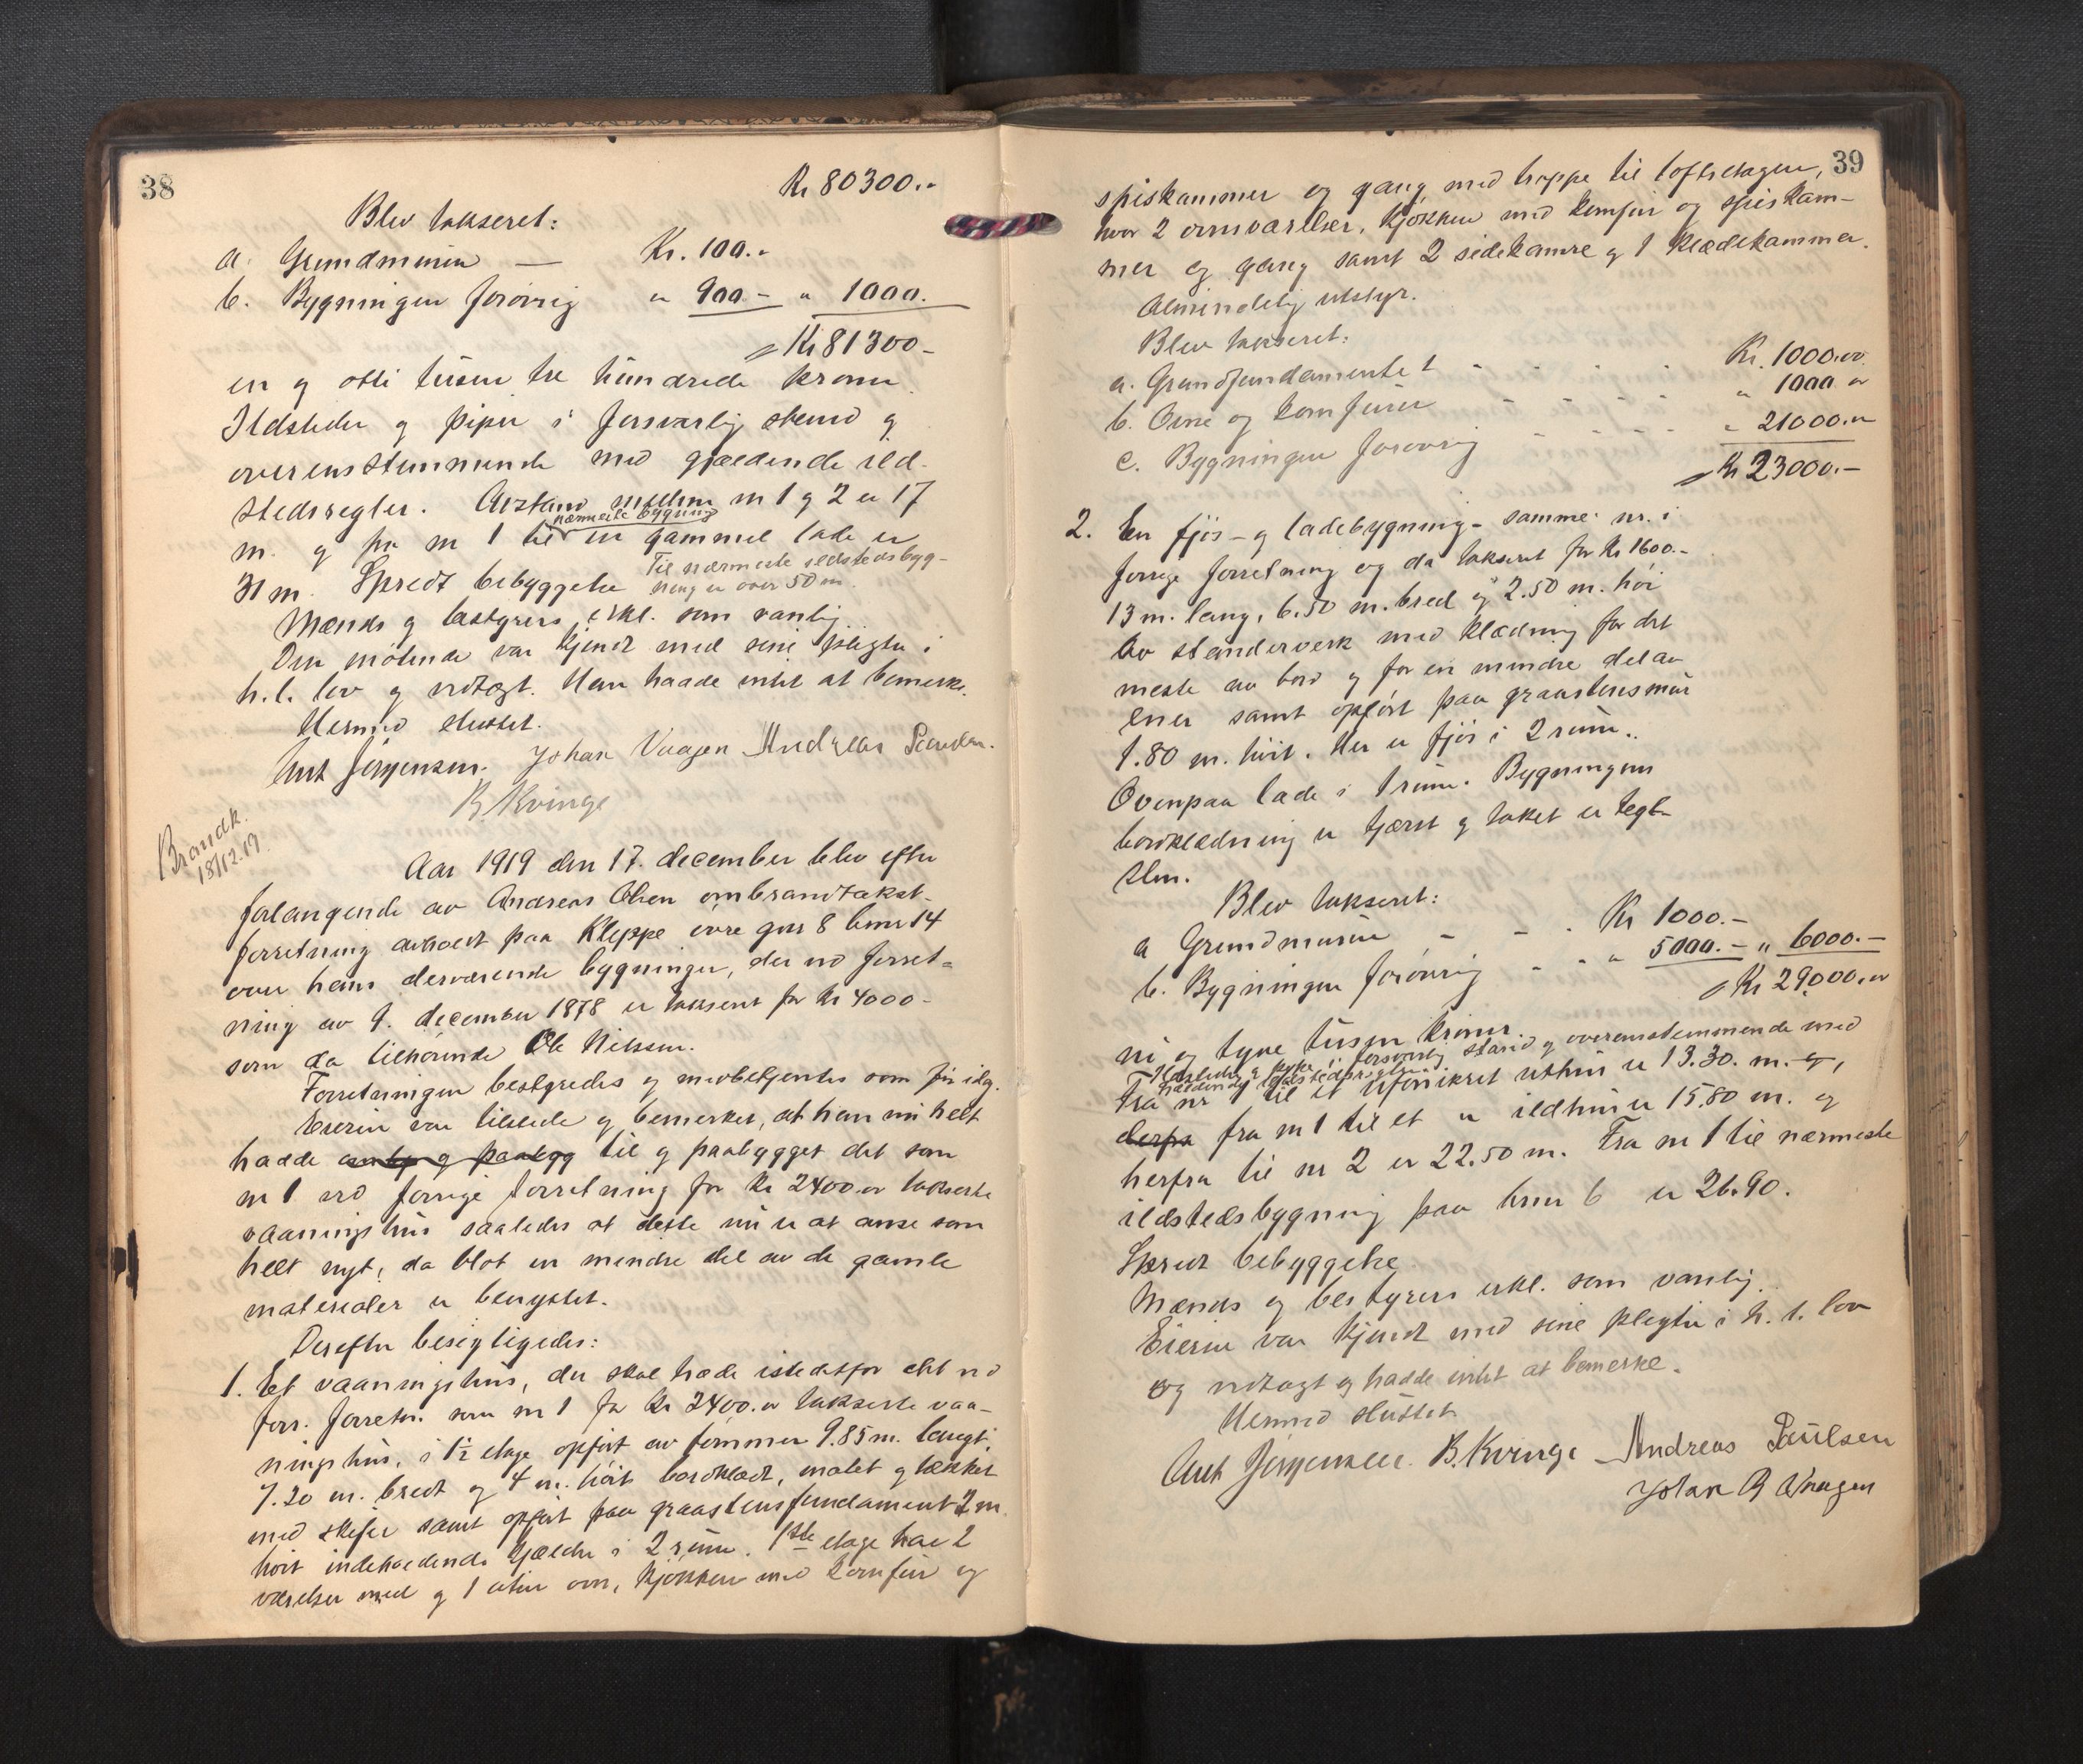 38
Kr 80300.-
Blev takseret:
a. Grundmuren — Kr. 100.-
b. Bygningen forøvrig " 900.- " 1000.
Kr 81300-
en og otti tusen tre hundrede kroner.
Ildsteder og piper i forsvarlig stand og
overensstemmende med gjældende ild-
stedsregler. Avstand mellem nr 1 og 2 er 17
nærmeste bygning
m. og fra nr 1 til en gammel lade er
31 m. Spredt bebyggelse Til nærmeste ildstedsbyg-
ning er over 50 m.
Mænds og bestyrers erkl. som vanlig.
Den møtende var kjendt med sine pligter i
h.t. lov og vedtægt. Han hadde intet at bemerke.
Hermed sluttet.
Ant Jørgensen. Johan Vaagen Andreas Paulsen.
B Kvinge
Brandk.
18/12.19.
Aar 1919 den 17. december blev efter
forlangende av Andreas Olsen ombrandtakst-
forretning avholdt paa Kleppe øvre gnr 8 bnr 14
over hans derværende bygninger, der ved forret-
ning av 9. december 1878 er takseret for Kr 4000-
som da tilhørende Ole Nilssen.
Forretningen bestyredes og medbetjentes som før idag.
Eieren var tilstede og bemerket, at han nu helt
hadde til og paabygget det som
nr 1 ved forrige forretning for Kr 2400.00 takserte
vaaningshus saaledes at dette nu er at anse som
helt nyt, da blot en mindre del av de gamle
materialer er benyttet.
Derefter besigtigedes:
1. Et vaaningshus, der skal træde istedetfor det ved
forr. forretn. som nr 1 for Kr 2400.00 takserte vaa-
ningshus, i 1½ etage opført av tømmer 9.85 m. langt,
7.20 m. bredt og 4 m. høit bordklædt, malet og tækket
med skifer samt opført paa graastensfundament 2 m.
høit indeholdende kjælder i 2 rum. 1ste etage har 2
værelser med og 1 uten ovn, kjøkken med komfur og
39
spiskammer og gang med trappe til loftsetagen,
hvor 2 ovnsværelser, kjøkken med komfur og spiskam-
mer og gang samt 2 sidekamre og 1 klædekammer.
Almindelig utstyr.
Blev takseret:
a. Grundfundamentet - - - - Kr. 1000.00
b. Ovne og komfurer - - - - " 1000.00
c. Bygningen forøvrig - - - - " 21000.00
Kr 23000.-
2. En fjøs- og ladebygning - samme nr. i
forrige forretning og da takseret for Kr 1600.-
13 m. lang, 6.50 m. bred og 2.50 m. høi
av stenderverk med klædning for det
meste av bord og for en mindre del av
ener samt opført paa graastensmur
1.80 m. høit. Her er fjøs i 2 rum.
Ovenpaa lade i 1 rum. Bygningens
bordklædning er tjæret og taket er tegl-
sten.
Blev takseret:
a Grundmuren - - - Kr 1000.-
b. Bygningen forøvrig - - - " 5000.- " 6000.-
Kr 29000.00
ni og tyve tusen kroner.
Ildsteder og piper i forsvarlig stand og overensstemmende med
gjældende ildstedsregler
Fra nr 1 til et uforsikret uthus er 13.30. m. og,
derfra fra nr 1 til et " ildhus er 15.80 m. og
herfra til nr 2 er 22.50 m. Fra nr 1 til nærmeste
ildstedsbygning paa bnr 6 er 26.90.
Spredt bebyggelse.
Mænds og bestyrers erkl. som vanlig.
Eieren var kjendt med sine pligter i h. t. lov
og vedtægt og hadde intet at bemerke.
Hermed sluttet
Ant Jørgensen. B. Kvinge Andreas Paulsen
Johan B Vaagen